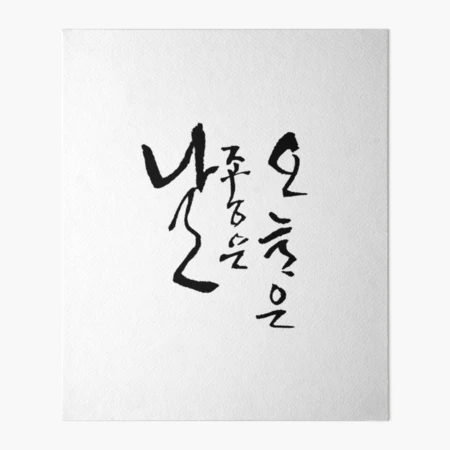 오늘은
좋은
날